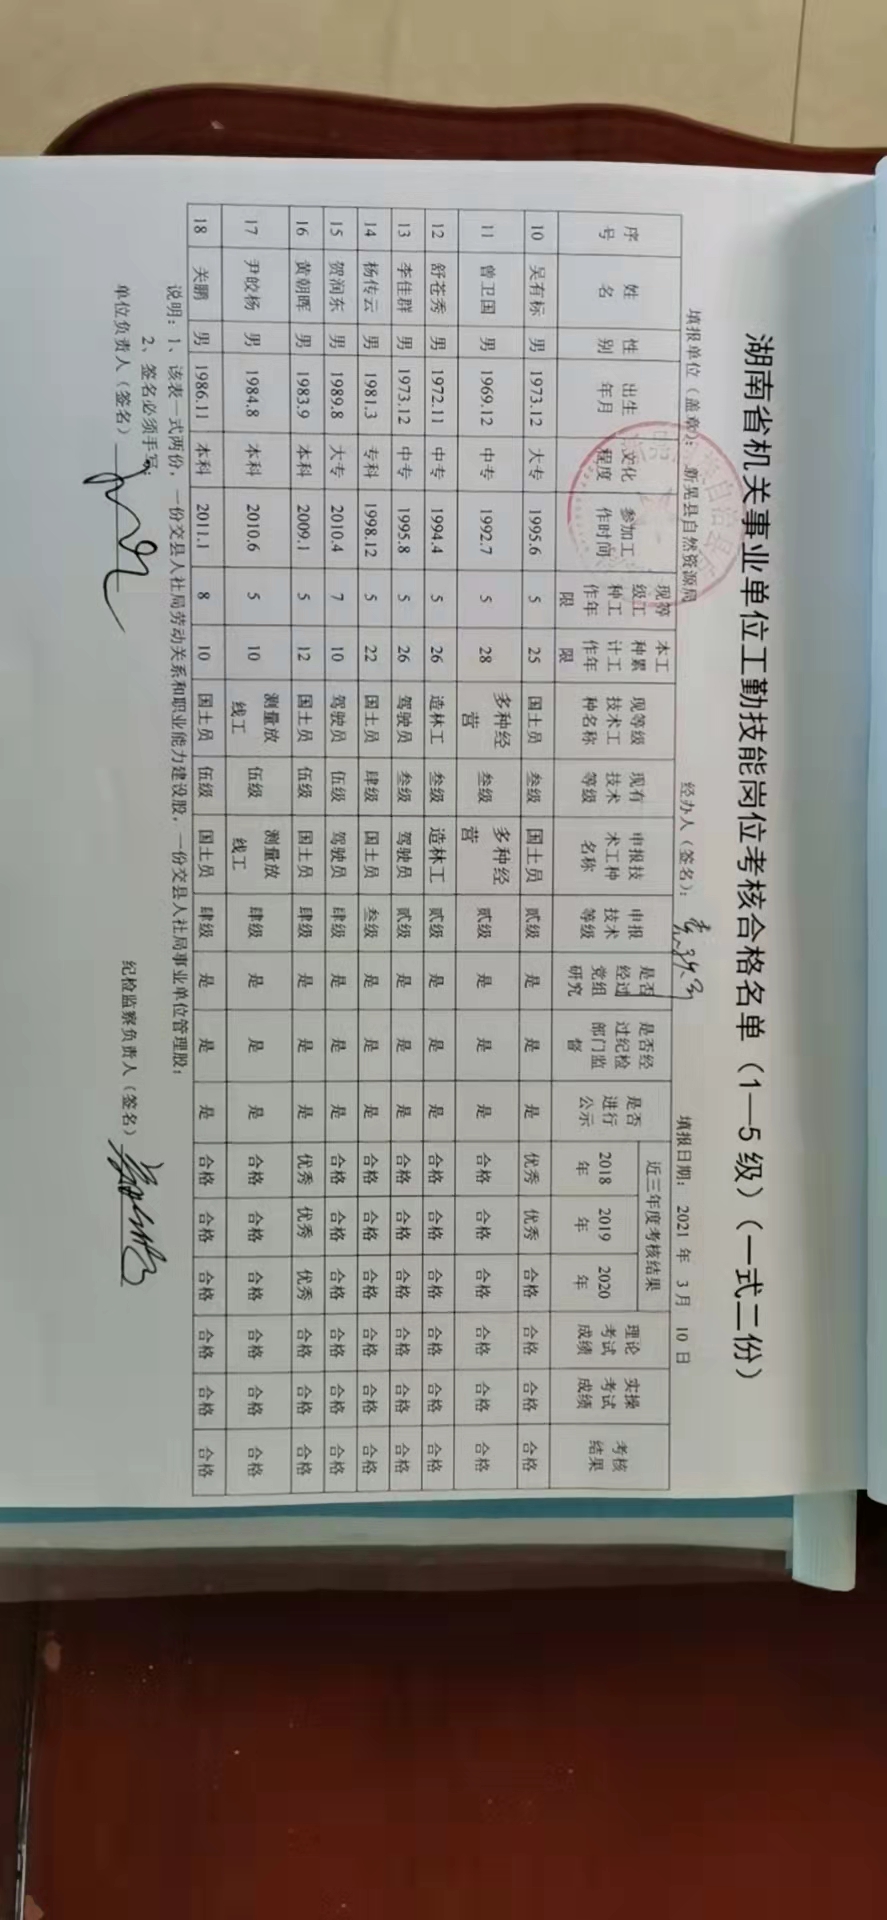 湖南省机关事业单位工勤技能岗位考核合格名单（1—5 级）（一式二份）
填报单位（盖章）： 新晃县自然资源局 经办人（签名）： 填报日期： 2021 年 3 月 10 日
序号 姓名 性别 出生年月 文化程度 参加工作时间 现等级工种工作年限 本工种累计工作年限 现等级技术工种名称 现有技术等级 申报技术工种名称 申报技术等级 是否经过党组研究 是否经过纪检部门监督 是否进行公示 近三年度考核结果 2018年 2019年 2020年 理论考试成绩 实操考试成绩 考核结果
10 吴有标 男 1973.12 大专 1995.6 5 25 国土员 叁级 国土员 贰级 是 是 是 优秀 优秀 合格 合格 合格 合格
11 曾卫国 男 1969.12 中专 1992.7 5 28 多种经营 叁级 多种经营 贰级 是 是 是 合格 合格 合格 合格 合格 合格
12 舒苍秀 男 1972.11 中专 1994.4 5 26 造林工 叁级 造林工 贰级 是 是 是 合格 合格 合格 合格 合格 合格
13 李佳群 男 1973.12 中专 1995.8 5 26 驾驶员 叁级 驾驶员 贰级 是 是 是 合格 合格 合格 合格 合格 合格
14 杨传云 男 1981.3 专科 1998.12 5 22 国土员 肆级 国土员 叁级 是 是 是 合格 合格 合格 合格 合格 合格
15 贺润东 男 1989.8 大专 2010.4 7 10 驾驶员 伍级 驾驶员 肆级 是 是 是 合格 合格 合格 合格 合格 合格
16 黄朝晖 男 1983.9 本科 2009.1 5 12 国土员 伍级 国土员 肆级 是 是 是 优秀 优秀 优秀 合格 合格 合格
17 尹皎杨 男 1984.8 本科 2010.6 5 10 测量放线工 伍级 测量放线工 肆级 是 是 是 合格 合格 合格 合格 合格 合格
18 关鹏 男 1986.11 本科 2011.1 8 10 国土员 伍级 国土员 肆级 是 是 是 合格 合格 合格 合格 合格 合格
说明：1、该表一式两份，一份交县人社局劳动关系和职业能力建设股，一份交县人社局事业单位管理股；
2、签名必须手写；
单位负责人（签名） 纪检监察负责人（签名）